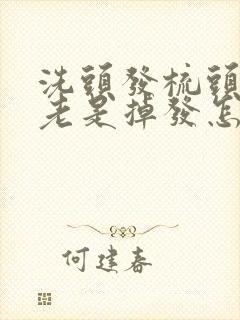 洗頭發梳頭
老是掉發怎
何建春